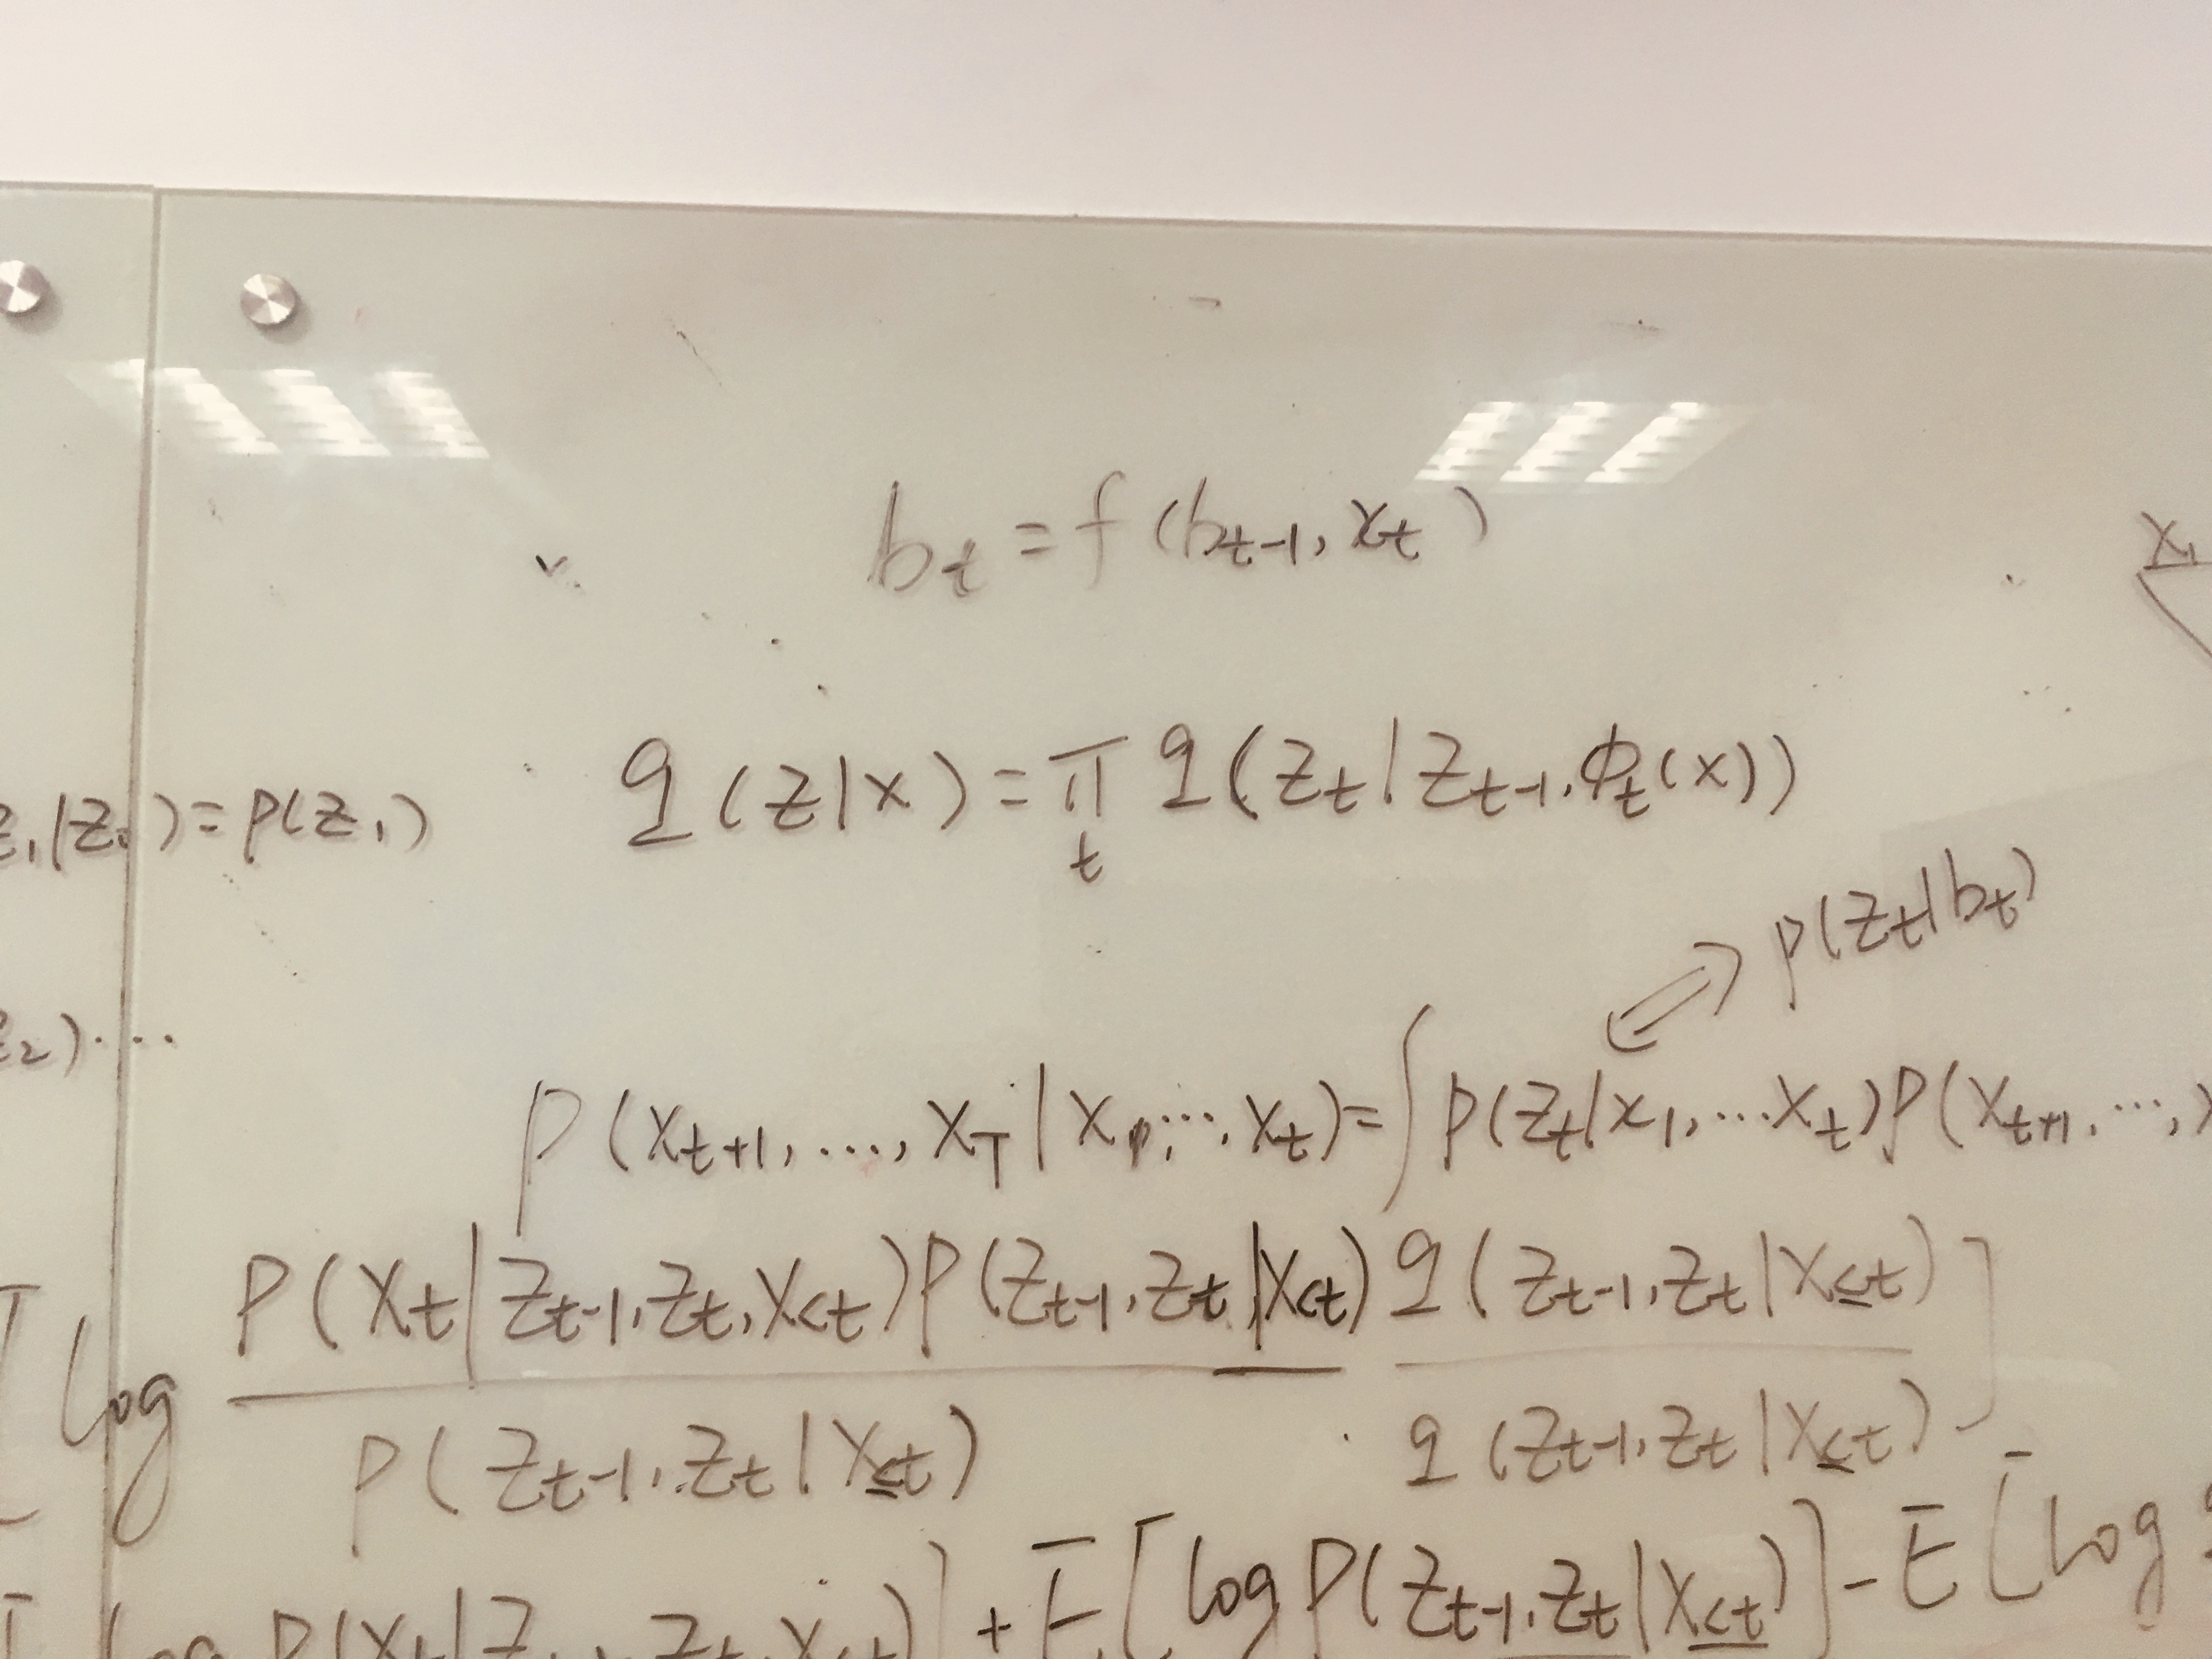 b_t = f(b_{t-1}, x_t)
x_1
z_1|z_0) = p(z_1)
q(z|x) = π_t q(z_t|z_{t-1}, ϕ_t(x))
p(z_t|b_t)
z_2)....
p(x_{t+1}, ..., x_T | x_1, ..., x_t) = ∫ p(z_t|x_1, ... x_t) p(x_{t+1}, ...,
P(x_t|z_{t-1}, z_t, x_{<t}) P(z_{t-1}, z_t|x_{<t}) q(z_{t-1}, z_t|x_{≤t}) ]
log
p(z_{t-1}, z_t|x_{≤t}) q(z_{t-1}, z_t|x_{≤t})
log P(x_t|z_{t-1}, z_t, x_{<t})] + E[log P(z_{t-1}, z_t|x_{<t})] - E[log